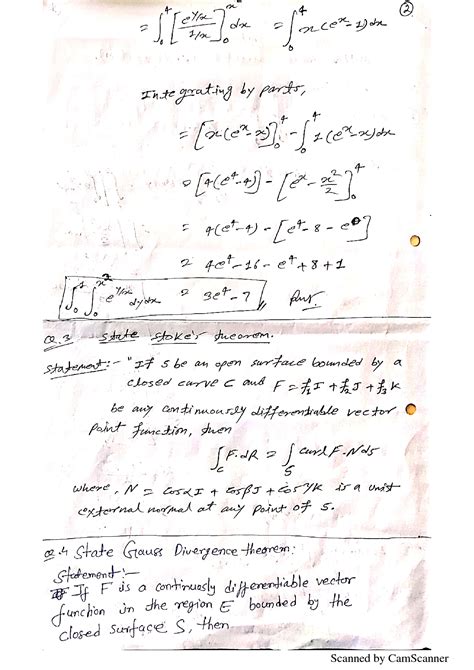 ②
= ∫₀⁴ [e^{y/x} / 1/x]₀^{x²} dx = ∫₀⁴ x(eˣ-1)dx
Integrating by parts,
= [x(eˣ-x)]₀⁴ - ∫₀⁴ 1(eˣ-x)dx
= [4(e⁴-4)] - [eˣ - x²/2]₀⁴
= 4(e⁴-4) - [e⁴-8-e⁰]
= 4e⁴-16-e⁴+8+1
∫₀⁴ ∫₀^{x²} e^{y/x} dydx = 3e⁴-7 // Ans
Q.3 State Stoke's theorem.
Statement:- "If S be an open surface bounded by a
closed curve C and F = f₁I + f₂J + f₃K
be any continuously differentiable vector
point function, then
∫_C F.dR = ∫_S curl F.N ds
where, N = cosαI + cosβJ + cosγK is a unit
external normal at any point of S.
Q.4 State Gauss Divergence theorem:
Statement:-
If F is a continuosly differentiable vector
function in the region E bounded by the
closed surface S, then
Scanned by CamScanner